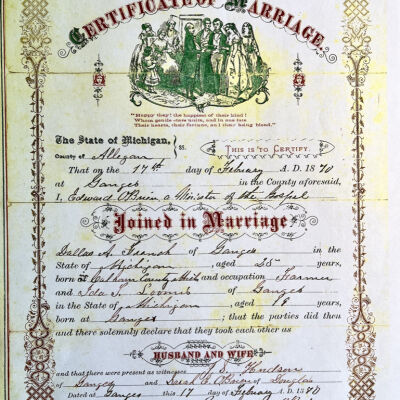 CERTIFICATE OF MARRIAGE.
"Happy they! the happiest of their kind!
Whom gentle stars unite, and in one fate
Their hearts, their fortune, and their being blend."
The State of Michigan,
County of Allegan } SS. THIS IS TO CERTIFY.
That on the 17th day of February A. D. 1870
at Ganges in the County aforesaid,
I, Edward O'Brien a Minister of the Gospel
Joined in Marriage
Dallas A. French of Ganges in the
State of Michigan, aged 25 years,
born at Calhoun County Mich and occupation Farmer
and Ida S. of Ganges
in the State of Michigan, aged 18 years,
born at Ganges; that the parties did then
and there solemnly declare that they took each other as
HUSBAND AND WIFE
and that there were present as witnesses S.
of Ganges and Sarah O'Brien of Douglas
Dated at Ganges this 17 day of February A. D. 1870